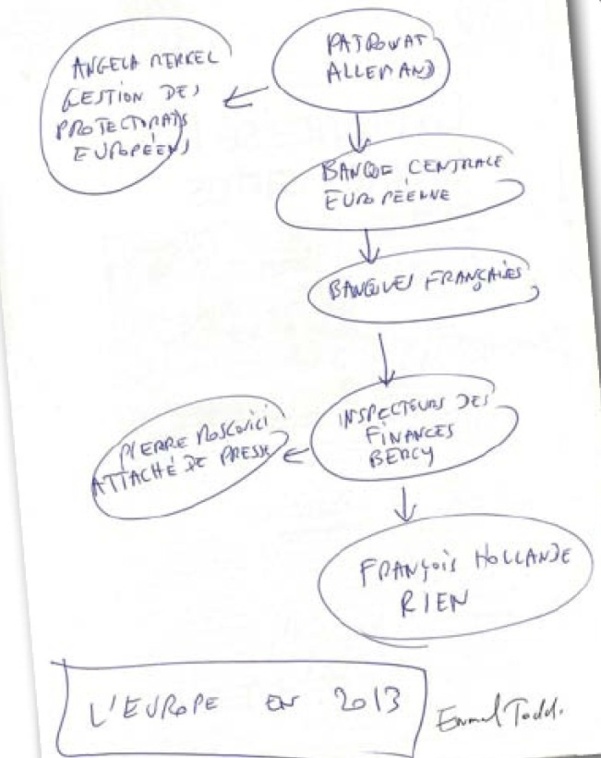 PATRONAT
ALLEMAND
ANGELA MERKEL
GESTION DES
PROTECTORATS
EUROPÉENS
BANQUE CENTRALE
EUROPÉENNE
BANQUES FRANÇAISES
INSPECTEURS DES
FINANCES
BERCY
PIERRE MOSCOVICI
ATTACHÉ DE PRESSE
FRANÇOIS HOLLANDE
RIEN
L'EUROPE EN 2013
Emmanuel Todd.